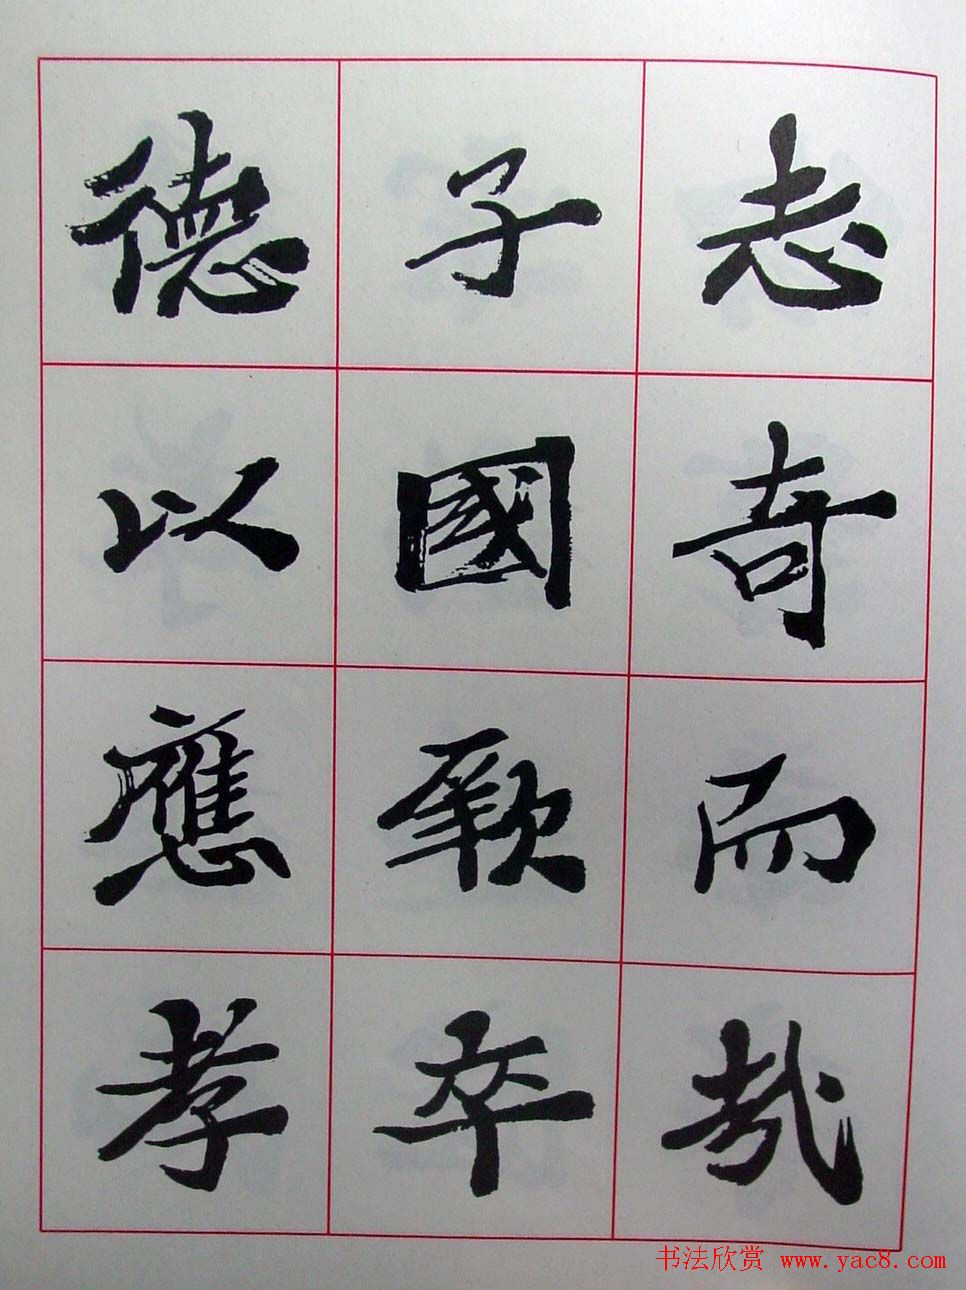 志奇而
子國厥卒
德以應孝
书法欣赏 www.yac8.com